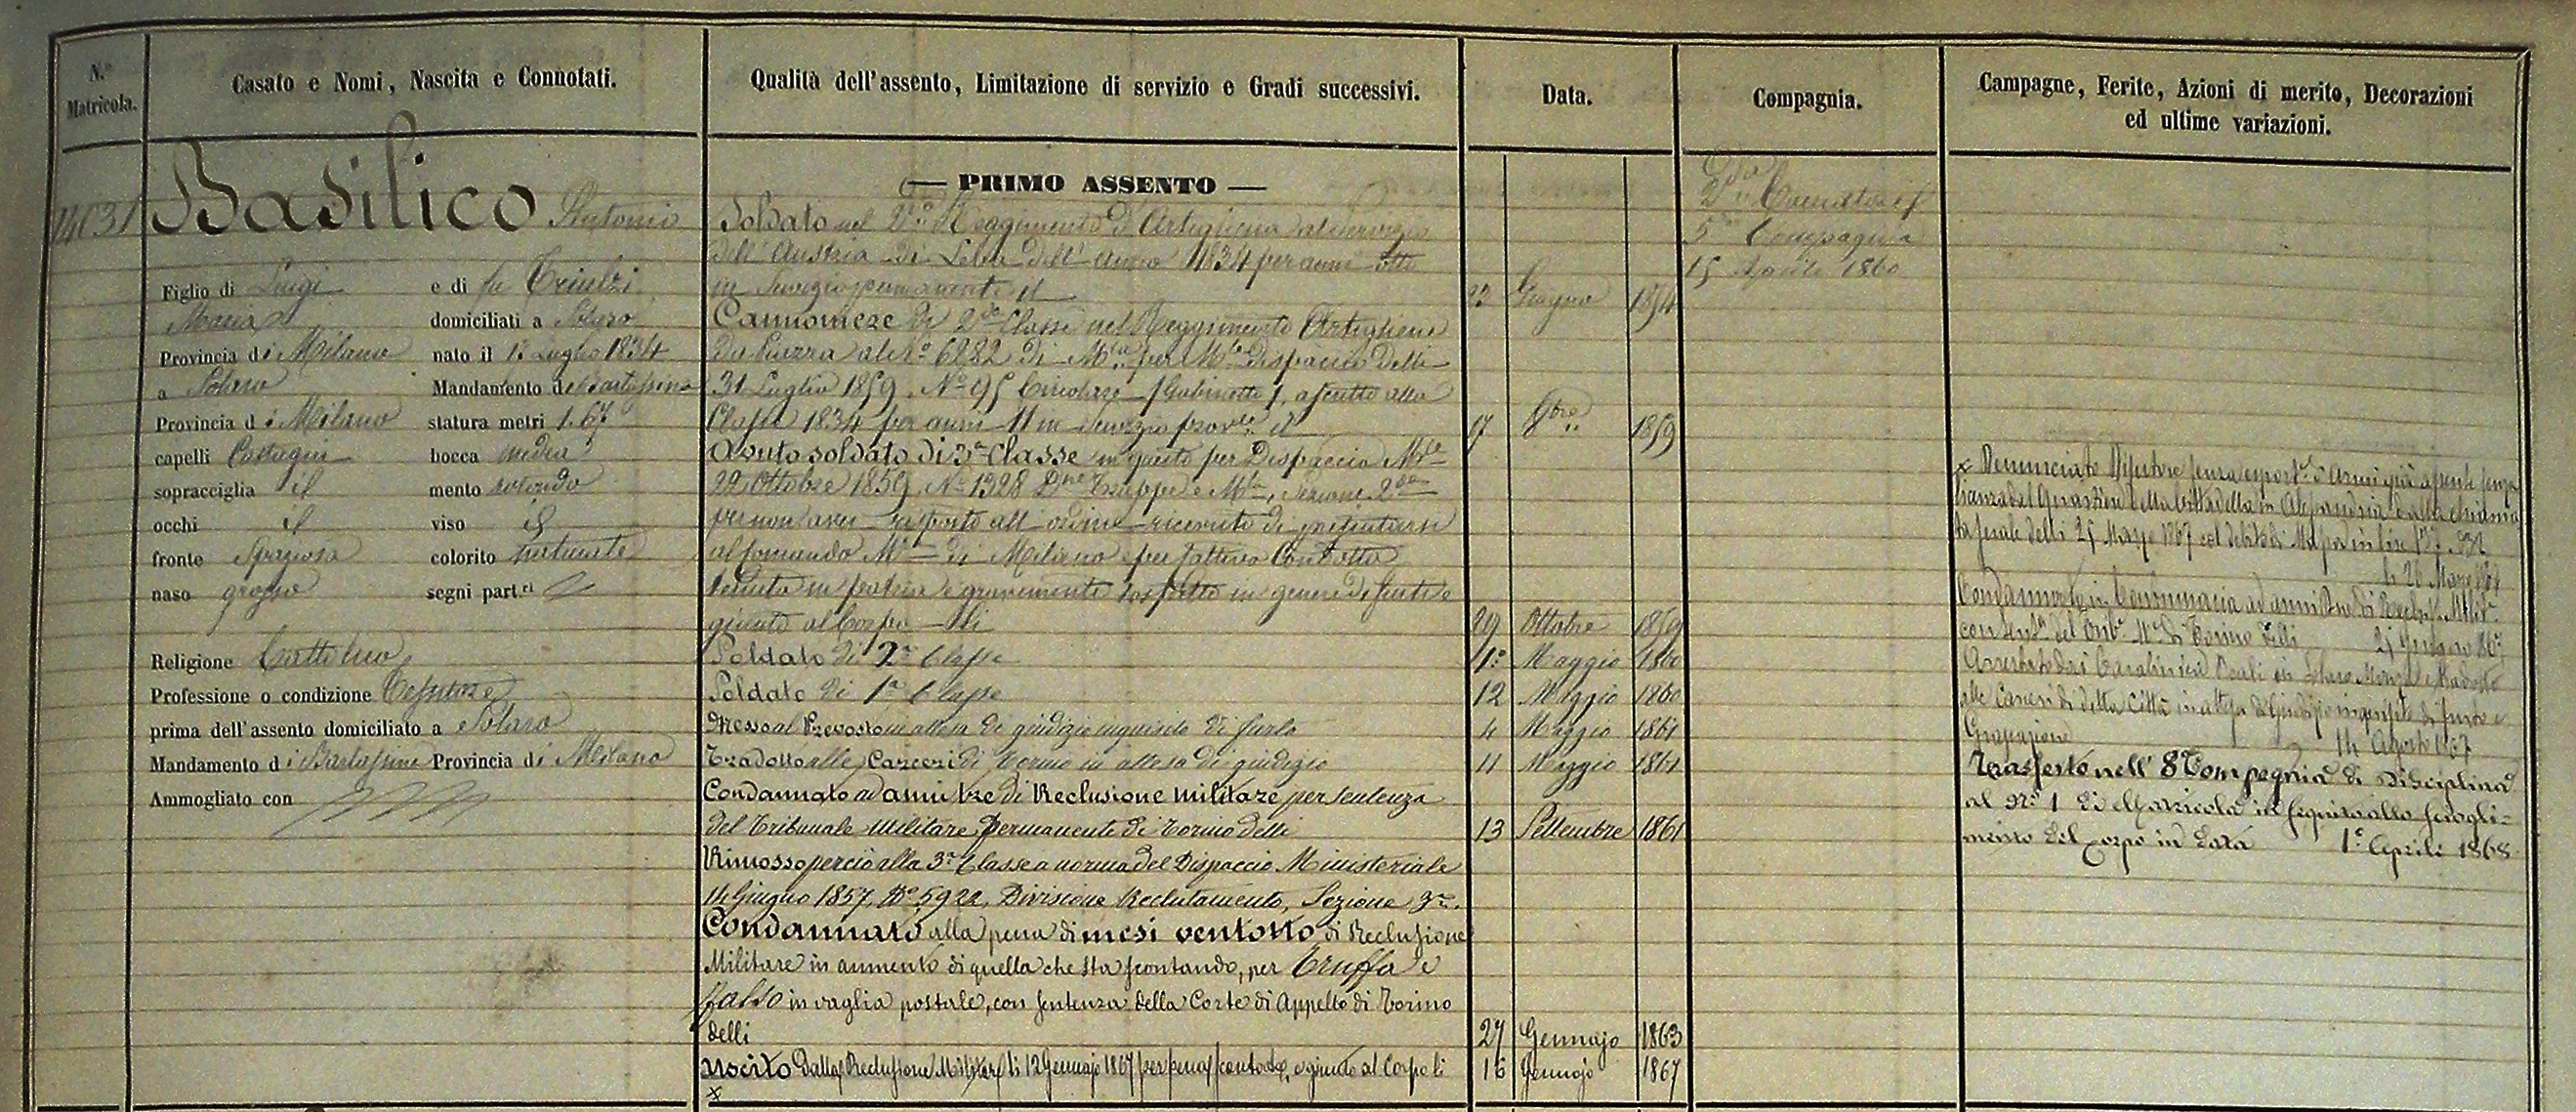 N.º Matricola.
Casato e Nomi, Nascita e Connotati.
Qualità dell'assento, Limitazione di servizio e Gradi successivi.
Data.
Compagnia.
Campagne, Ferite, Azioni di merito, Decorazioni
ed ultime variazioni.
14031
Basilico Antonio
Figlio di Luigi e di fu Triulzi
Maria domiciliati a Solaro
Provincia di Milano nato il 1º Luglio 1834
a Solaro Mandamento di Barlassina
Provincia di Milano statura metri 1.67
capelli Castagni bocca media
sopracciglia id mento rotondo
occhi id viso id
fronte Spaziosa colorito naturale
naso grosso segni part.ri
Religione Cattolica
Professione o condizione Tessitore
prima dell'assento domiciliato a Solaro
Mandamento di Barlassina Provincia di Milano
Ammogliato con
— PRIMO ASSENTO —
Soldato nel 2º Reggimento d'Artiglieria al servizio
dell'Austria di Leva dell'anno 1834 per anni otto
in servizio permanente il 22 Giugno 1854
Cannoniere di 2da Classe nel Reggimento Artiglieria
da Piazza al Nº 6282 di Mla per Mle dispaccio delli
31 Luglio 1859, Nº 95 Circolare (Gabinetto), ascritto alla
Classe 1834 per anni 11 in servizio provle il 17 8bre 1859
Avuto soldato di 3a Classe in questo per Dispaccio Mle
22 Ottobre 1859, Nº 1328 Dne Truppe e Mla, Sezione 2da
per non aver risposto all'ordine ricevuto di presentarsi
al Comando Mre di Milano e per cattiva Condotta
tenuta in patria e gravemente sospetto in genere di furti e
giunto al Corpo li 29 Ottobre 1859
Soldato di 2a Classe 1º Maggio 1860
Soldato di 1a Classe 12 Maggio 1860
Messo al Prevosto in attesa di giudizio inquisito di furto 4 Maggio 1861
Tradotto alle Carceri di Torino in attesa di giudizio 11 Maggio 1861
Condannato ad anni tre di Reclusione militare per sentenza
del Tribunale Militare permanente di Torino delli 13 Settembre 1861
Rimosso perciò alla 3a Classe a norma del Dispaccio Ministeriale
14 Giugno 1857, Nº 5922, Divisione Reclutamento, Sezione 3a.
Condannato alla pena di mesi ventotto di Reclusione
Militare in aumento di quella che sta scontando, per Truffa e
falso in vaglia postale, con sentenza della Corte di Appello di Torino
delli 27 Gennajo 1863
Uscito dalla Reclusione Militare li 12 Gennajo 1867 per pena scontata, e giunto al Corpo li 16 Gennajo 1867
x
2da
5a Compagnia
15 Aprile 1860
x Denunciato Disertore senza esport.e d'Armi già assente senza
licenza dal Quartiere della Cittadella in Alessandria dalla chiama
ta serale delli 25 Marzo 1867 col debito di Massa in lire
li 26 Marzo 1867
Condannato in Contumacia ad anni due di Reclus. Milit.
con sent.a del Trib.e M.e di Torino delli 25 Giugno 867
Arrestato dai Carabinieri Reali in Solaro Monza e tradotto
alle Carceri di detta Città in attesa di giudizio inquisito di furto e
Grassazione 14 Agosto 1867
Trasferto nell'8a Compagnia di Disciplina
al Nº 1 di Matricola in seguito allo sciogli=
mento del Corpo in data 1º Aprile 1868